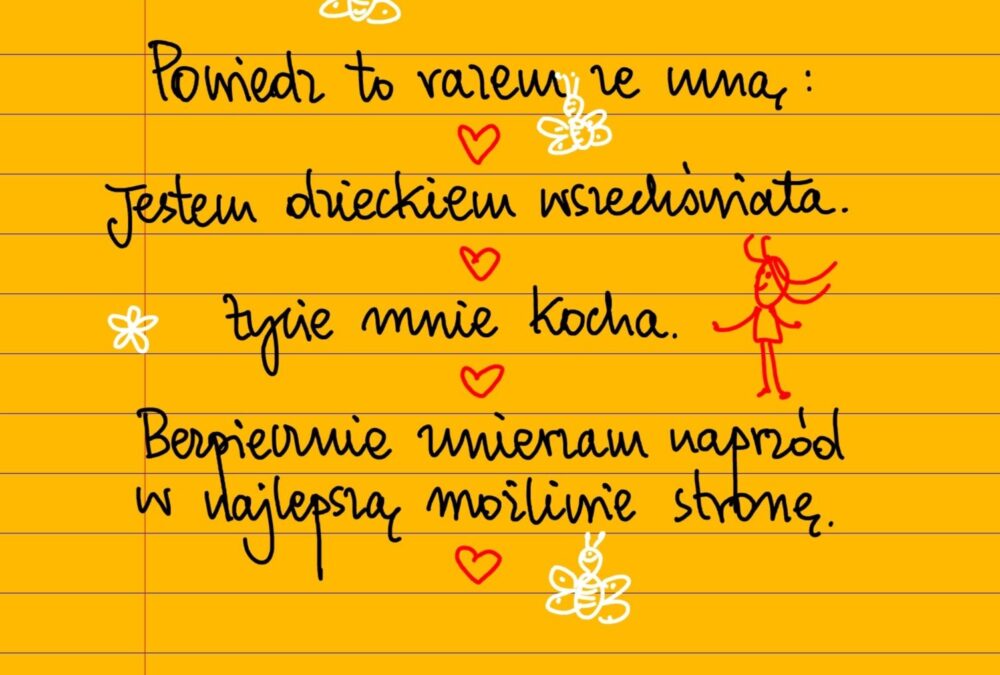 Powiedz to razem ze mną:
Jestem dzieckiem wszechświata.
życie mnie kocha.
Bezpiecznie zmierzam naprzód
w najlepszą możliwie stronę.